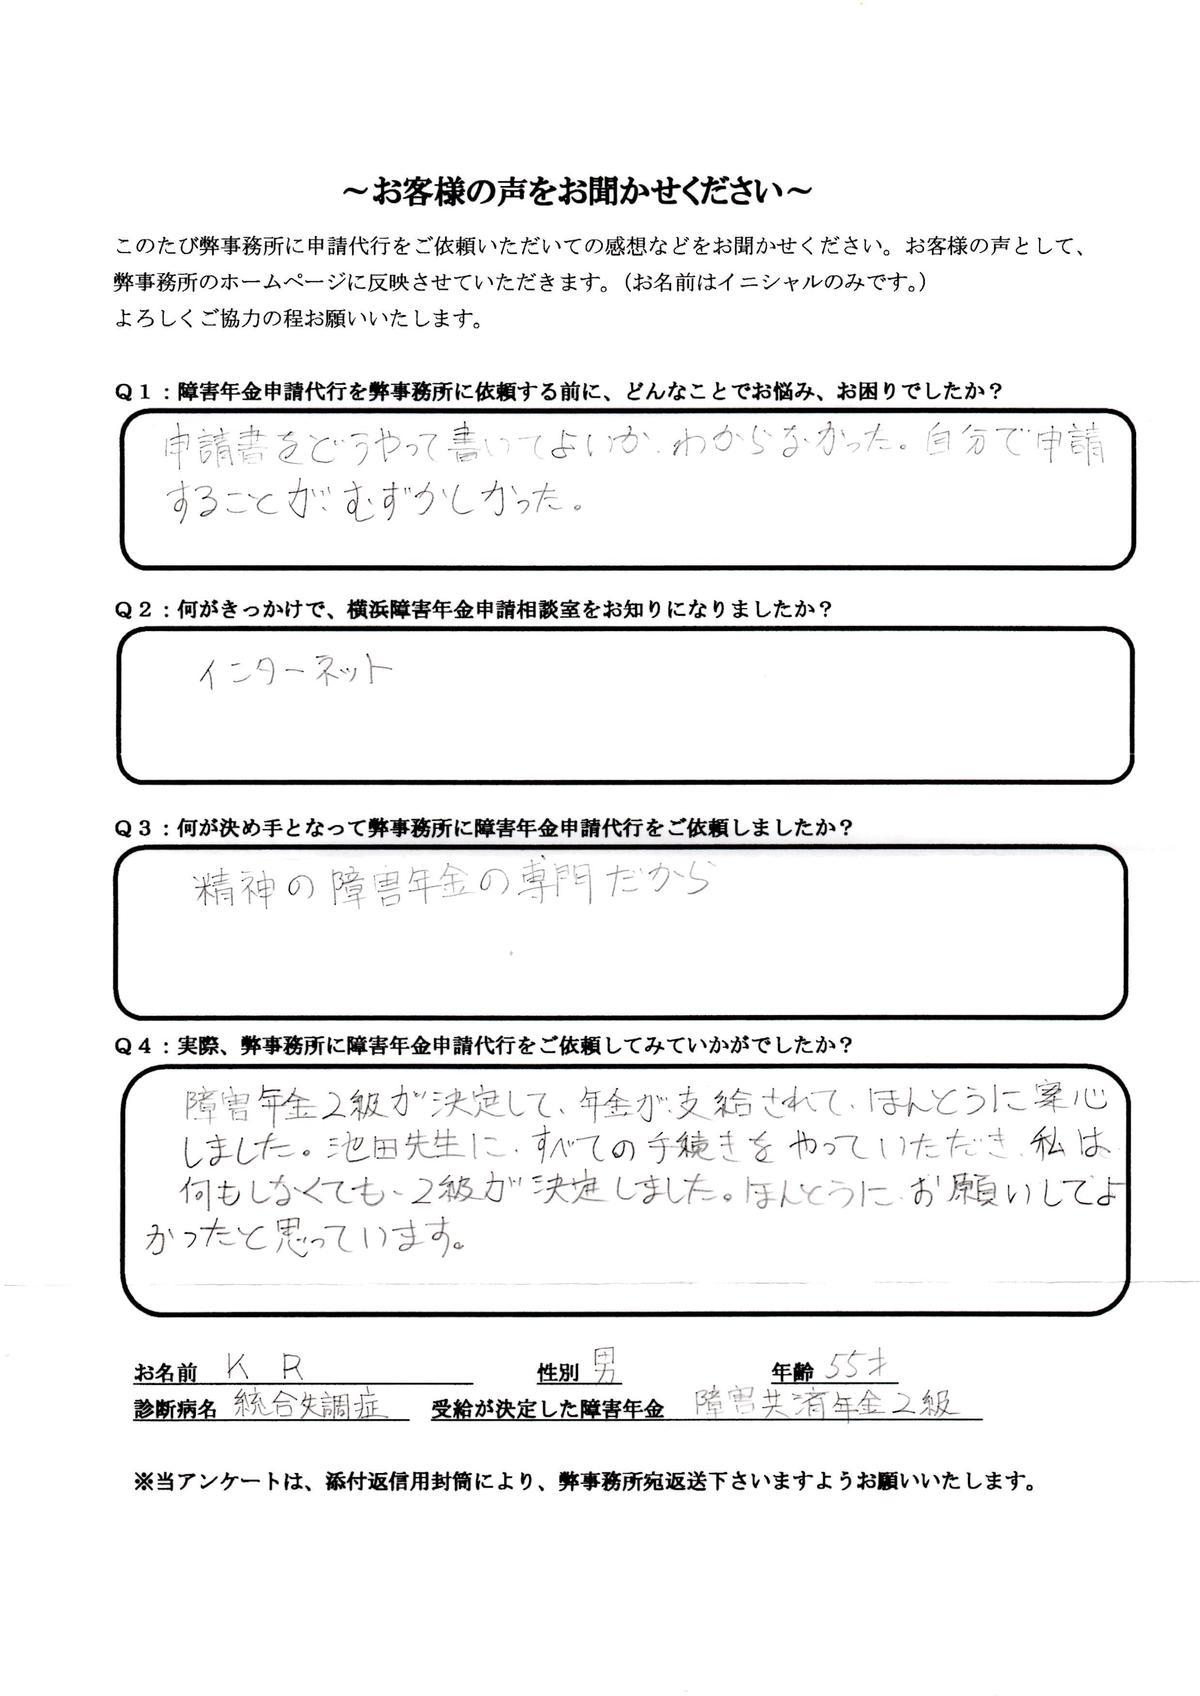 ～お客様の声をお聞かせください～
このたび弊事務所に申請代行をご依頼いただいての感想などをお聞かせください。お客様の声として、
弊事務所のホームページに反映させていただきます。（お名前はイニシャルのみです。）
よろしくご協力の程お願いいたします。
Ｑ１：障害年金申請代行を弊事務所に依頼する前に、どんなことでお悩み、お困りでしたか？
申請書をどうやって書いてよいか、わからなかった。自分で申請
することが、むずかしかった。
Ｑ２：何がきっかけで、横浜障害年金申請相談室をお知りになりましたか？
インターネット
Ｑ３：何が決め手となって弊事務所に障害年金申請代行をご依頼しましたか？
精神の障害年金の専門だから
Ｑ４：実際、弊事務所に障害年金申請代行をご依頼してみていかがでしたか？
障害年金２級が決定して、年金が、支給されて、ほんとうに安心
しました。池田先生に、すべての手続きをやっていただき、私は
何もしなくても、２級が決定しました。ほんとうに、お願いしてよ
かったと思っています。
お名前 K R 性別 男 年齢 55才
診断病名 統合失調症 受給が決定した障害年金 障害共済年金２級
※当アンケートは、添付返信用封筒により、弊事務所宛返送下さいますようお願いいたします。